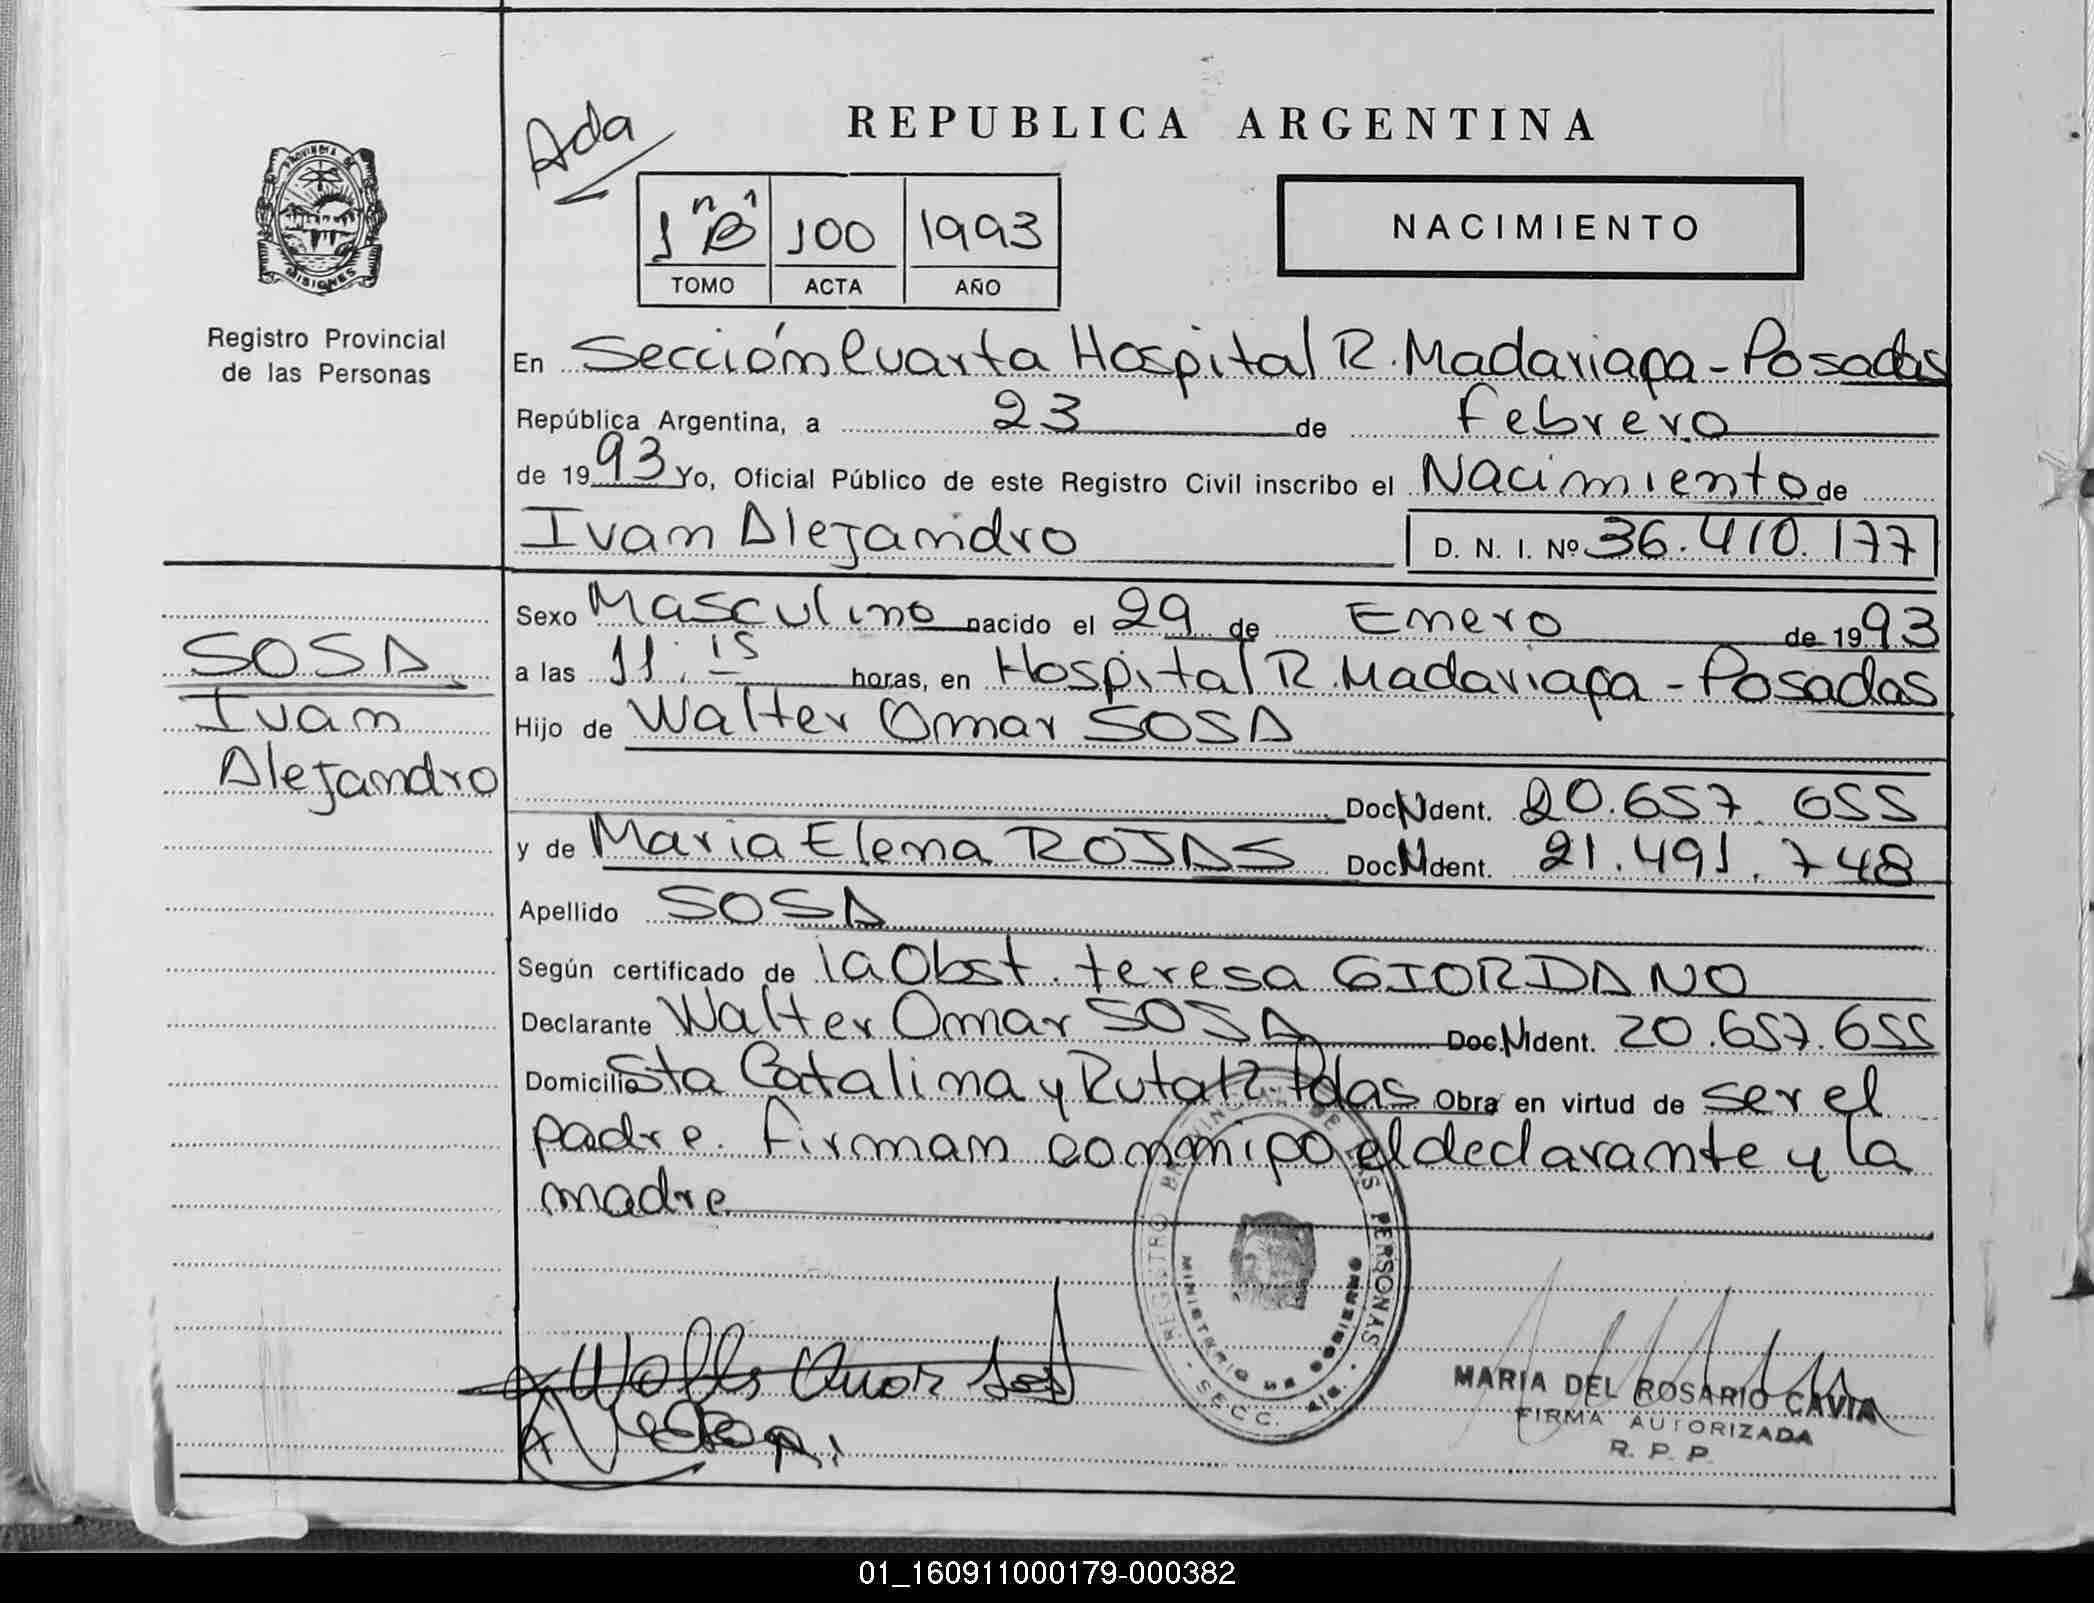 Ada
REPUBLICA ARGENTINA
PROVINCIA DE
MISIONES
1 "B" 100 1993
TOMO ACTA AÑO
NACIMIENTO
Registro Provincial
de las Personas
En Sección Cuarta Hospital R. Madariaga - Posadas
República Argentina, a 23 de Febrero
de 1993 Yo, Oficial Público de este Registro Civil inscribo el Nacimiento de
Ivan Alejandro D. N. I. Nº 36.410.177
SOSA
Ivan
Alejandro
Sexo Masculino nacido el 29 de Enero de 1993
a las 11:15 horas, en Hospital R. Madariaga - Posadas
Hijo de Walter Omar SOSA
Doc. Ident. 20.657.655
y de Maria Elena ROJAS Doc. Ident. 21.491.748
Apellido SOSA
Según certificado de la Obst. teresa GIORDANO
Declarante Walter Omar SOSA Doc. Ident. 20.657.655
Domicilio Sta Catalina y Ruta 12 Pdas Obra en virtud de ser el
padre. Firman conmigo el declarante y la
madre
REGISTRO PROVINCIAL DE LAS PERSONAS
MINISTERIO DE GOBIERNO
SECC. 4ta.
Walter Omar Sosa
MARIA DEL ROSARIO CAVIA
FIRMA AUTORIZADA
R. P. P.
01_160911000179-000382